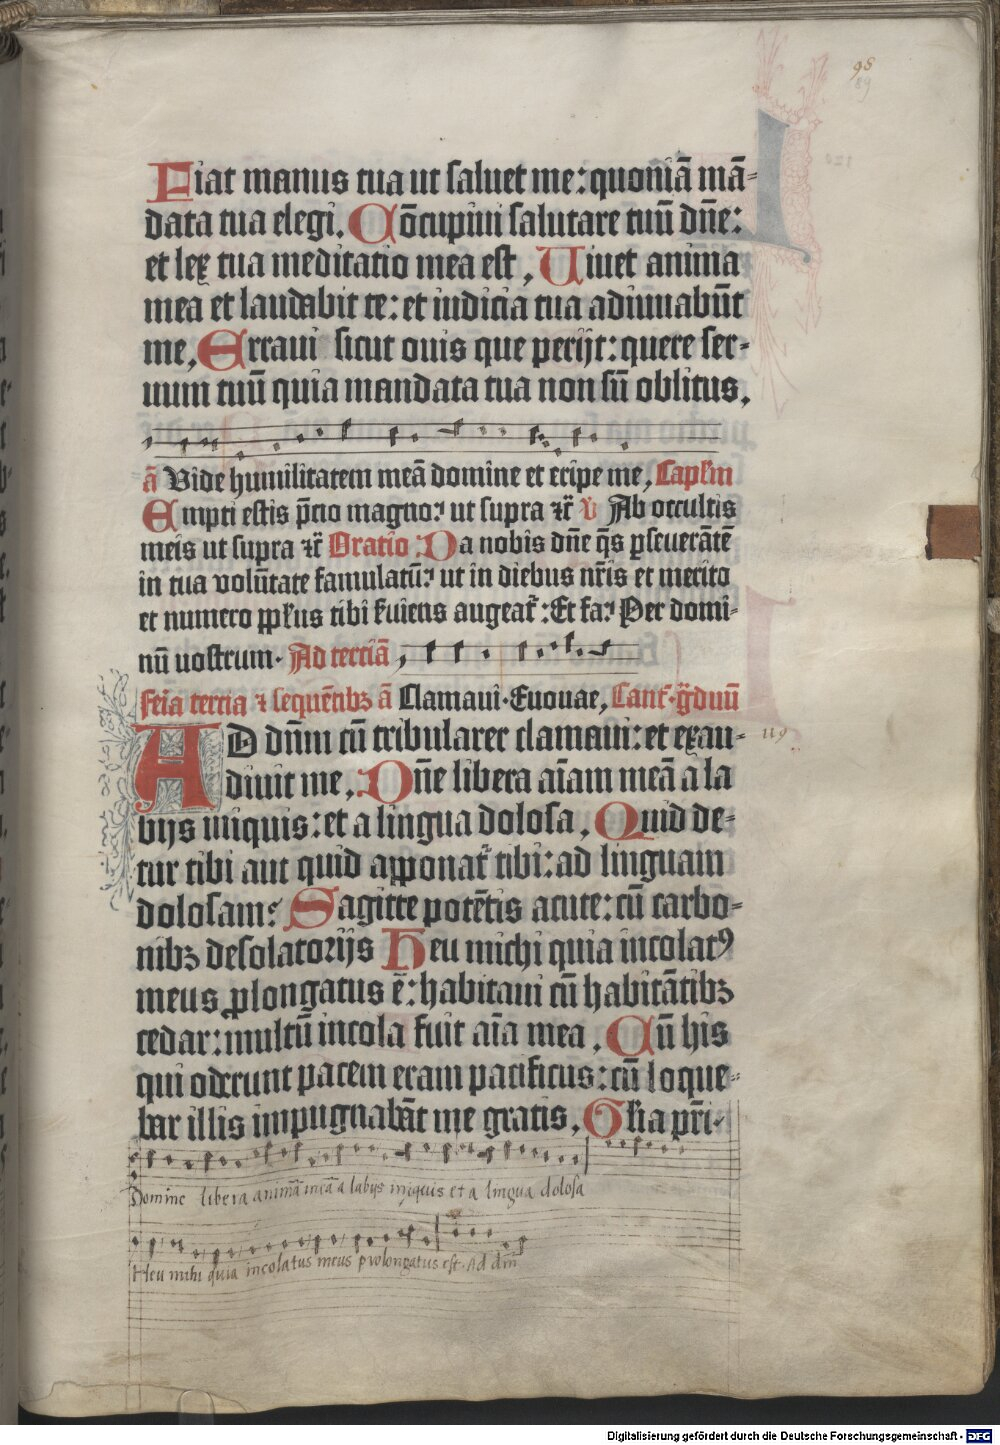 98
89
Fiat manus tua ut saluet me: quoniā mā-
data tua elegi. Cōcupiui salutare tuū dn̄e:
et lex tua meditatio mea est. Uiuet anima
mea et laudabit te: et iudicia tua adiuuabūt
me. Erraui sicut ouis que perijt: quere ser-
uum tuū quia mandata tua non sū oblitus.
ā Vide humilitatem meā domine et eripe me, Caplm
Empti estis p̄cio magno: ut supra ⁊c̄ v̄ Ab occultis
meis ut supra ⁊c̄ Oratio Da nobis dn̄e q̄s ꝑseuerātē
in tua volūtate famulatū: ut in diebus nr̄is et merito
et numero pplus tibi ẜuiens augeat̄: Et fa. Per domi-
nū nostrum. Ad terciā
feīa tercia ⁊ sequētibꝫ ā Clamaui. Euouae, Cant̄. ḡduū
AD dn̄m cū tribularer clamaui: et exau-
119
diuit me. Dn̄e libera aīam meā a la
bijs iniquis: et a lingua dolosa. Quid de-
tur tibi aut quid apponat̄ tibi: ad linguam
dolosam? Sagitte potētis acute: cū carbo-
nibꝫ desolatorijs Heu michi quia incolatꝰ
meus ꝓlongatus ē: habitaui cū habitātibꝫ
cedar: multū incola fuit aīa mea. Cū his
qui oderunt pacem eram pacificus: cū loque-
bar illis impugnabāt me gratis. Glīa pr̄i.
Domine libera animā meā a labijs iniquis et a lingua dolosa
Heu mihi quia incolatus meus prolongatus est. Ad dm̄
Digitalisierung gefördert durch die Deutsche Forschungsgemeinschaft - DFG